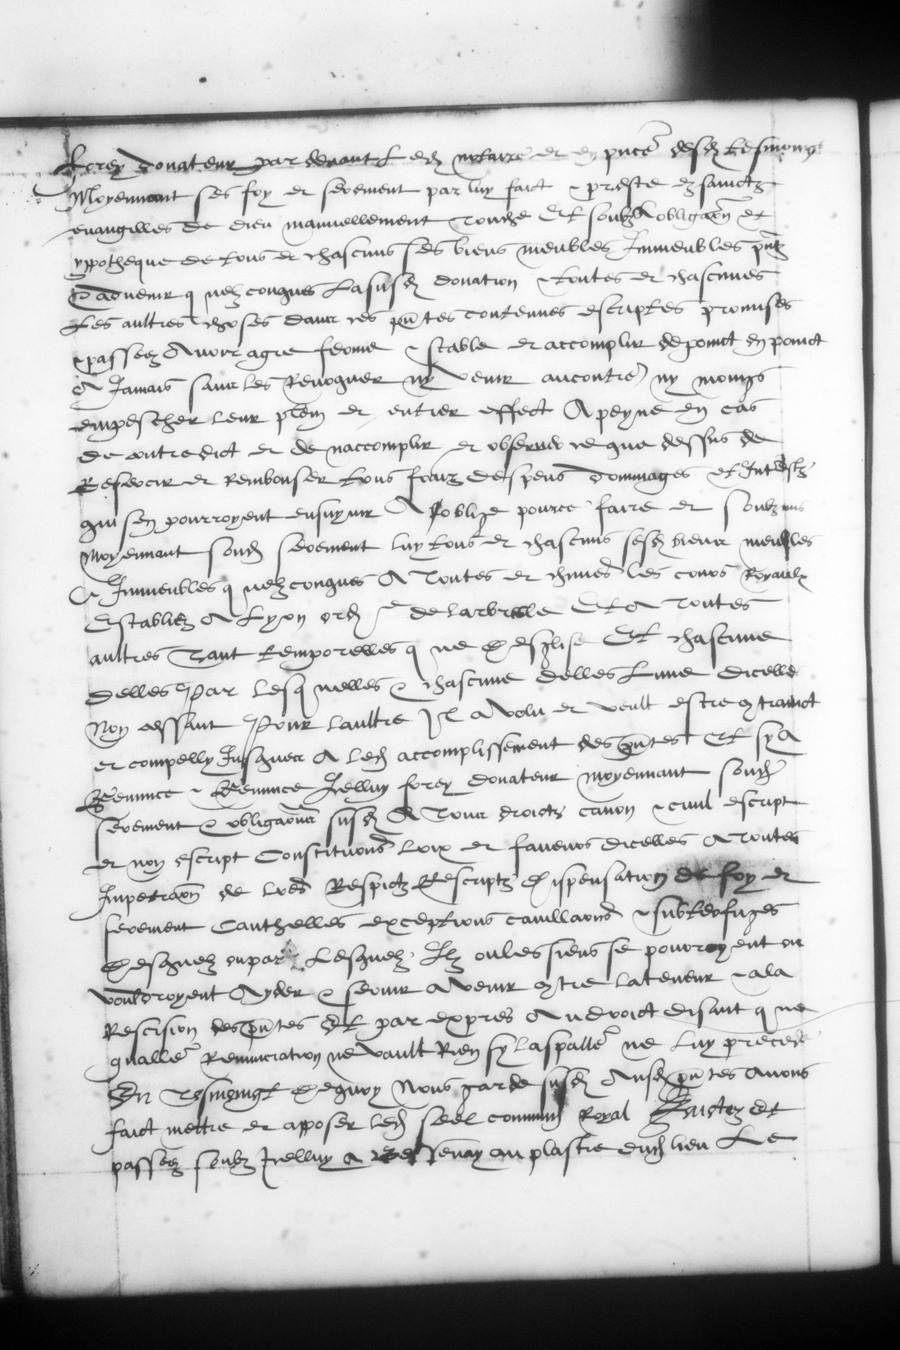 forey donateur par devant led notaire et en pnce desd tesmoings
Moyennant ses foy et serement par luy faict & preste es sainctz
evangilles de dieu manuellement touche Et soubz lobligaon et
yppotheque de tous et chascuns ses biens meubles Immeubles pntz
& advenir q uelzconques La susd donation & toutes et chascunes
Les aultres choses dans ces pntes contenues escriptes promises
& passees Avoir agre ferme & stable et accomplir de poinct en poinct
A Jamais sans les Revoquer ny venir aucontre ny moings
empescher leur plein et entier effect A peyne en cas
de contredict et de naccomplir et observer ce que dessus de
Reffeoir et rembourser tous fraiz despens dommages et Intestz
qui sen pourroyent ensuyvir A soblige pource faire et soubzmis
moyennant sond serement luy tous et chascuns sesd biens meubles
& Immeubles q uelzconques A toutes et chunes les cours Royaulx
Establies A Lyon ordre de larbresle Et A toutes
aultres tant temporelles q ue desglise Et chascune
delles Par lesq uelles & chascune delles Lune dicelle
Non cessant Pour laultre Il a volu et veult estre contrainct
et compelly Jusques A led accomplissement des pntes Et sy A
Renunce & Renunce Icelluy forey donateur moyennant sond
serement & obligaon susd A tous droictz canon & civil escript
et non escript Constitutions loix et faveurs dicelles A toutes
Impetraon de lres Respictz Rescriptz dispensation de foy et
serement Cauthelles exceptions cavillaons & subterfuges
desquelz ou par Lesquelz Il ou les siens se pourroyent ou
vouldroyent Ayder & servir A venir contre la teneur & a la
Rescision des pntes Et par expres Au droict disant q ue
gnalle Renunciation ne vault Rien sy la spalle ne luy precede
En tesmoingt de quoy Nous garde susd Ausd pntes avons
faict mettre et apposer led seel commun Royal Faictes Et
passees soubz Icelluy A Essenay au plastre dud lieu Le